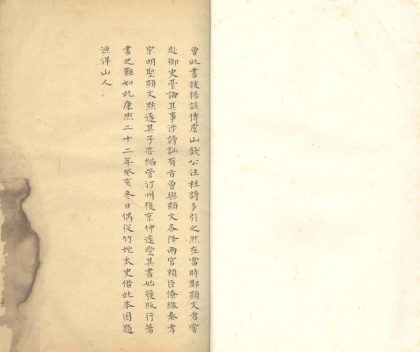 曾此書援据該博虞山錢公注杜詩多引之然在當時鄭顥文者嘗
赴御史臺論其事涉謗訕有旨魯與顥文各降兩官頼臣僚繳奏孝
宗明聖顥文熙遂其子亦編管汀州後京仲遠愛其書始獲版行著
書之難如此康熙二十二年癸亥冬日偶從竹垞太史借此本因題
漁洋山人